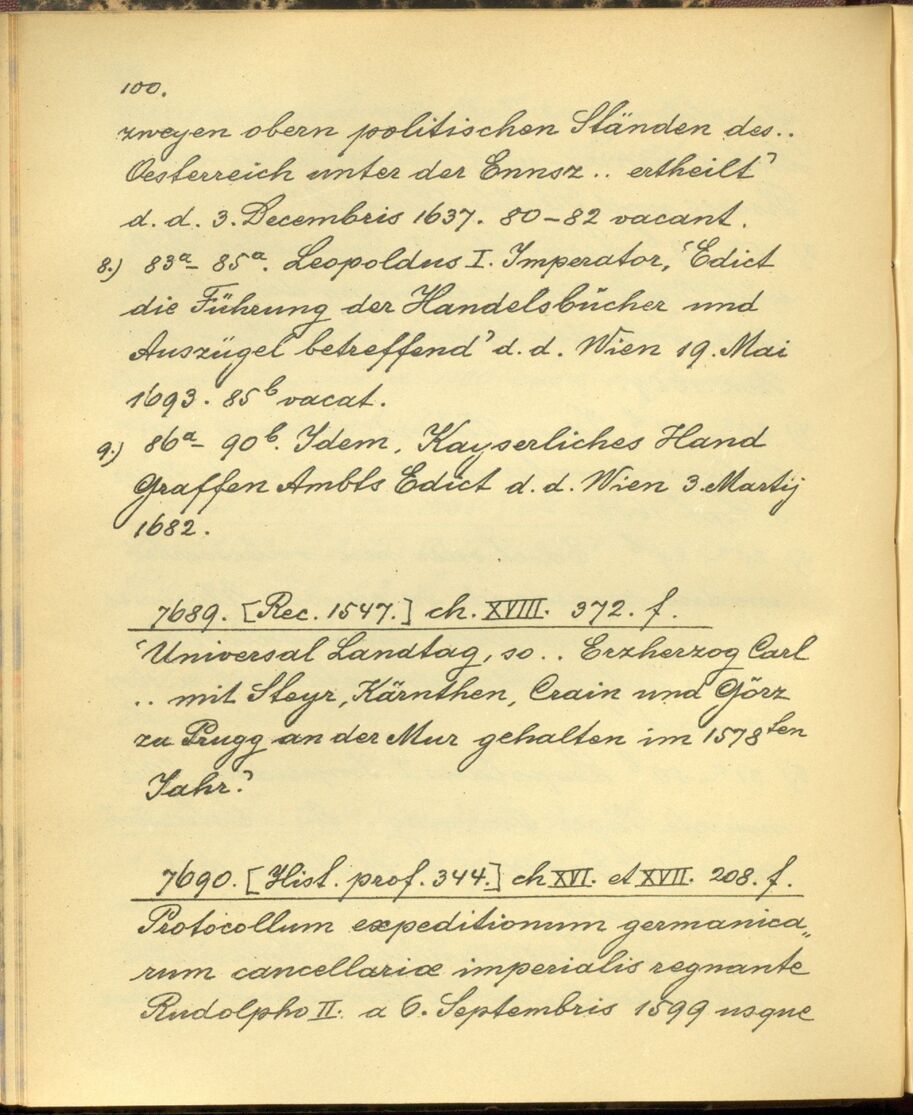 100.
zweyen obern politischen Ständen des..
Oesterreich unter der Ennsz .. ertheilt'
d. d. 3. Decembris 1637. 80–82 vacant.
8.) 83ᵃ– 85ᵃ. Leopoldus I. Imperator, 'Edict
die Führung der Handelsbücher und
Auszügel betreffend' d. d. Wien 19. Mai
1693. 85ᵇ vacat.
9.) 86ᵃ– 90ᵇ. Idem, Kayserliches Hand
Graffen Ambts Edict d. d. Wien 3. Martij
1682.
7689. [Rec. 1547.] ch. XVIII. 372. f.
'Universal Landtag, so .. Erzherzog Carl
.. mit Steyr, Kärnthen, Crain und Görz
zu Prugg an der Mur gehalten im 1578ᵗᵉⁿ
Jahr'.
7690. [Hist. prof. 344.] ch XVI. et XVII. 208. f.
Protocollum expeditionum germanica„
rum cancellariæ imperialis regnante
Rudolpho II. a 6. Septembris 1599 usque